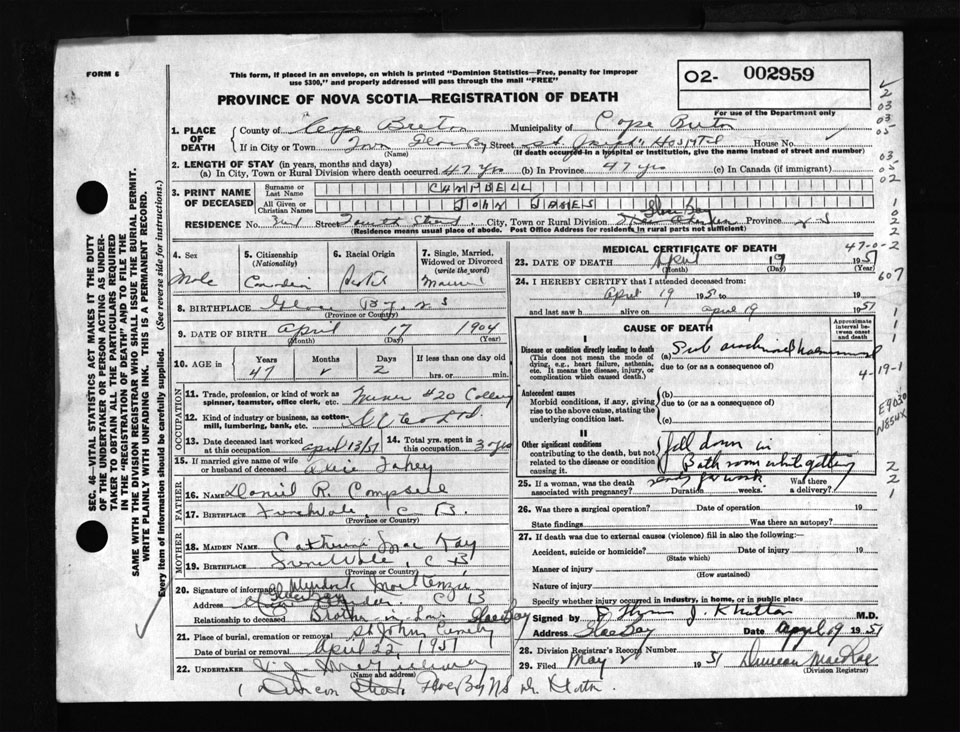 FORM 6
This form, if placed in an envelope, on which is printed "Dominion Statistics—Free, penalty for improper
use $300," and properly addressed will pass through the mail "FREE"
02- 002959
For use of the Department only
PROVINCE OF NOVA SCOTIA—REGISTRATION OF DEATH
1. PLACE OF DEATH
County of Cape Breton Municipality of Cape Breton
If in City or Town Town Glace Bay Street St Joseph's Hospital House No.
(Name) (If death occurred in a hospital or institution, give the name instead of street and number)
2. LENGTH OF STAY (in years, months and days)
(a) In City, Town or Rural Division where death occurred 47 yrs (b) In Province 47 yrs (c) In Canada (if immigrant)
3. PRINT NAME OF DECEASED
Surname or Last Name CAMPBELL
All Given or Christian Names JOHN JAMES
RESIDENCE No. Street Fourth Street City, Town or Rural Division Glace Bay Province N S
(Residence means usual place of abode. Post Office Address for residents in rural parts not sufficient)
4. Sex Male
5. Citizenship (Nationality) Canadian
6. Racial Origin
7. Single, Married, Widowed or Divorced (write the word) Married
8. BIRTHPLACE Glace Bay N S
(Province or Country)
9. DATE OF BIRTH April 17 1904
(Month) (Day) (Year)
10. AGE in Years Months Days If less than one day old
47 2 hrs. or min.
OCCUPATION
11. Trade, profession, or kind of work as spinner, teamster, office clerk, etc. Miner #20 Colliery
12. Kind of industry or business, as cotton-mill, lumbering, bank, etc.
13. Date deceased last worked at this occupation April 13/51 14. Total yrs. spent in this occupation 30 yrs
15. If married give name of wife or husband of deceased Fahey
FATHER
16. NAME Daniel R. Campbell
17. BIRTHPLACE C B.
(Province or Country)
MOTHER
18. MAIDEN NAME Catherine Mac Kay
19. BIRTHPLACE C B
(Province or Country)
20. Signature of informant Murdock MacKenzie
Address C B
Relationship to deceased Brother-in-Law Glace Bay
21. Place of burial, cremation or removal St Johns Cemetery
Date of burial or removal April 22, 1951
22. UNDERTAKER
(Name and address)
Street Glace Bay NS
MEDICAL CERTIFICATE OF DEATH
23. DATE OF DEATH April 19 1951
(Month) (Day) (Year)
24. I HEREBY CERTIFY that I attended deceased from:
April 19 195
and last saw h alive on April 19 1951
CAUSE OF DEATH
Approximate interval between onset and death
I
Disease or condition directly leading to death
(This does not mean the mode of dying, e.g., heart failure, asthenia, etc. It means the disease, injury, or complication which caused death.)
(a) Sub arachnoid haemorrhage
due to (or as a consequence of)
4-19-1
Antecedent causes
Morbid conditions, if any, giving rise to the above cause, stating the underlying condition last.
(b)
due to (or as a consequence of)
(c)
II
Other significant conditions contributing to the death, but not related to the disease or condition causing it.
fell down in
Bath room whilst getting
ready for work
25. If a woman, was the death associated with pregnancy? Duration weeks. Was there a delivery?
26. Was there a surgical operation? Date of operation 19
State findings Was there an autopsy?
27. If death was due to external causes (violence) fill in also the following:
Accident, suicide or homicide? Date of injury 19
(State which)
Manner of injury
(How sustained)
Nature of injury
Specify whether injury occurred in industry, in home, or in public place
Signed by M.D.
Address Glace Bay Date April 19 1951
28. Division Registrar's Record Number
29. Filed May 1951 Duncan MacRae
(Division Registrar)
SEC. 46—VITAL STATISTICS ACT MAKES IT THE DUTY
OF THE UNDERTAKER OR PERSON ACTING AS UNDERTAKER
TO OBTAIN ALL THE PARTICULARS REQUIRED
IN THE "REGISTRATION OF DEATH" AND TO FILE THE
SAME WITH THE DIVISION REGISTRAR WHO SHALL ISSUE THE BURIAL PERMIT.
WRITE PLAINLY WITH UNFADING INK. THIS IS A PERMANENT RECORD.
Every item of information should be carefully supplied. (See reverse side for instructions.)
2
03
03
05
03
05
02
47-0-2
607
E9030
N854X
2
2
1